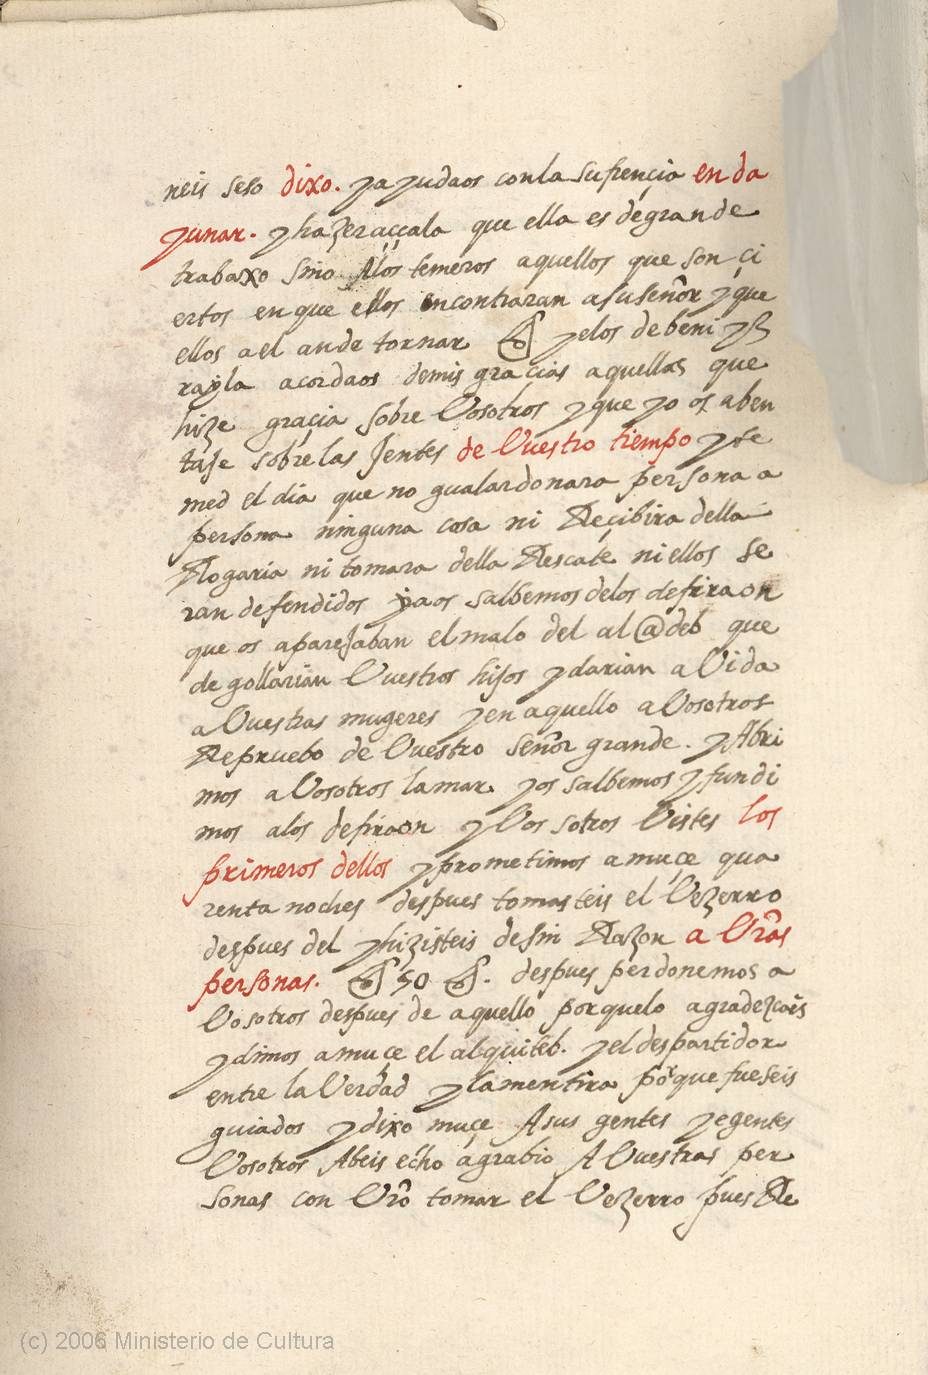 neis seso dixo. yayudaos conla sufrençia en da
yunar. yhazeraççala que ella es degrande
trabaxo sino Alos temeros aquellos que son çi
ertos en que ellos encontraran asuseñor yque
ellos ael ande tornar yelos debeni yz
rayla acordaos demis graçias aquellas que
hize graçia sobre Vosotros yque yo os aben
taje sobrelas Jentes de Vuestro tiempo yte
med el dia que no gualardonara persona a
persona ninguna cosa ni Reçibira della
Rogaria ni tomara della Rescate ni ellos se
ran defendidos yaos salbemos delos defiraon
que os apareJaban el malo del al@deb que
de gollarian Vuestros hijos ydarian aVida
aVuestras mugeres yen aquello aVosotros
Repruebo de Vuestro señor grande. yAbri
mos aVosotros lamar yos salbemos yfundi
mos alos defiraon yVos sotros Vistes los
primeros dellos yprometimos amuçe qua
renta noches despues tomasteis el Vezerro
despues del yhizisteis desin Razon a Vrãs
personas. 50 . despues perdonemos a
Vosotros despues de aquello porquelo agradezcais
ydimos amuçe el alquiteb. yel despartidor
entre la Verdad ylamentira porque fueseis
guiados ydixo muçe Asus gentes yegentes
Vosotros Abeis echo agrabio AVuestras per
sonas con Vrõ tomar el Vezerro pues Re
(c) 2006 Ministerio de Cultura